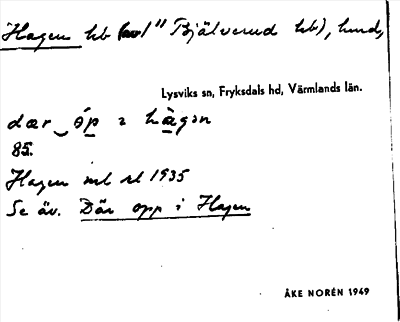 Hagen hb (av 1/1 Bjälverud hb), hmd,
Lysviks sn, Fryksdals hd, Värmlands län.
dær ‿ óp ɩ hàgən
85.
Hagen ml rl 1935
Se äv. Där opp i Hagen
ÅKE NORÉN 1949